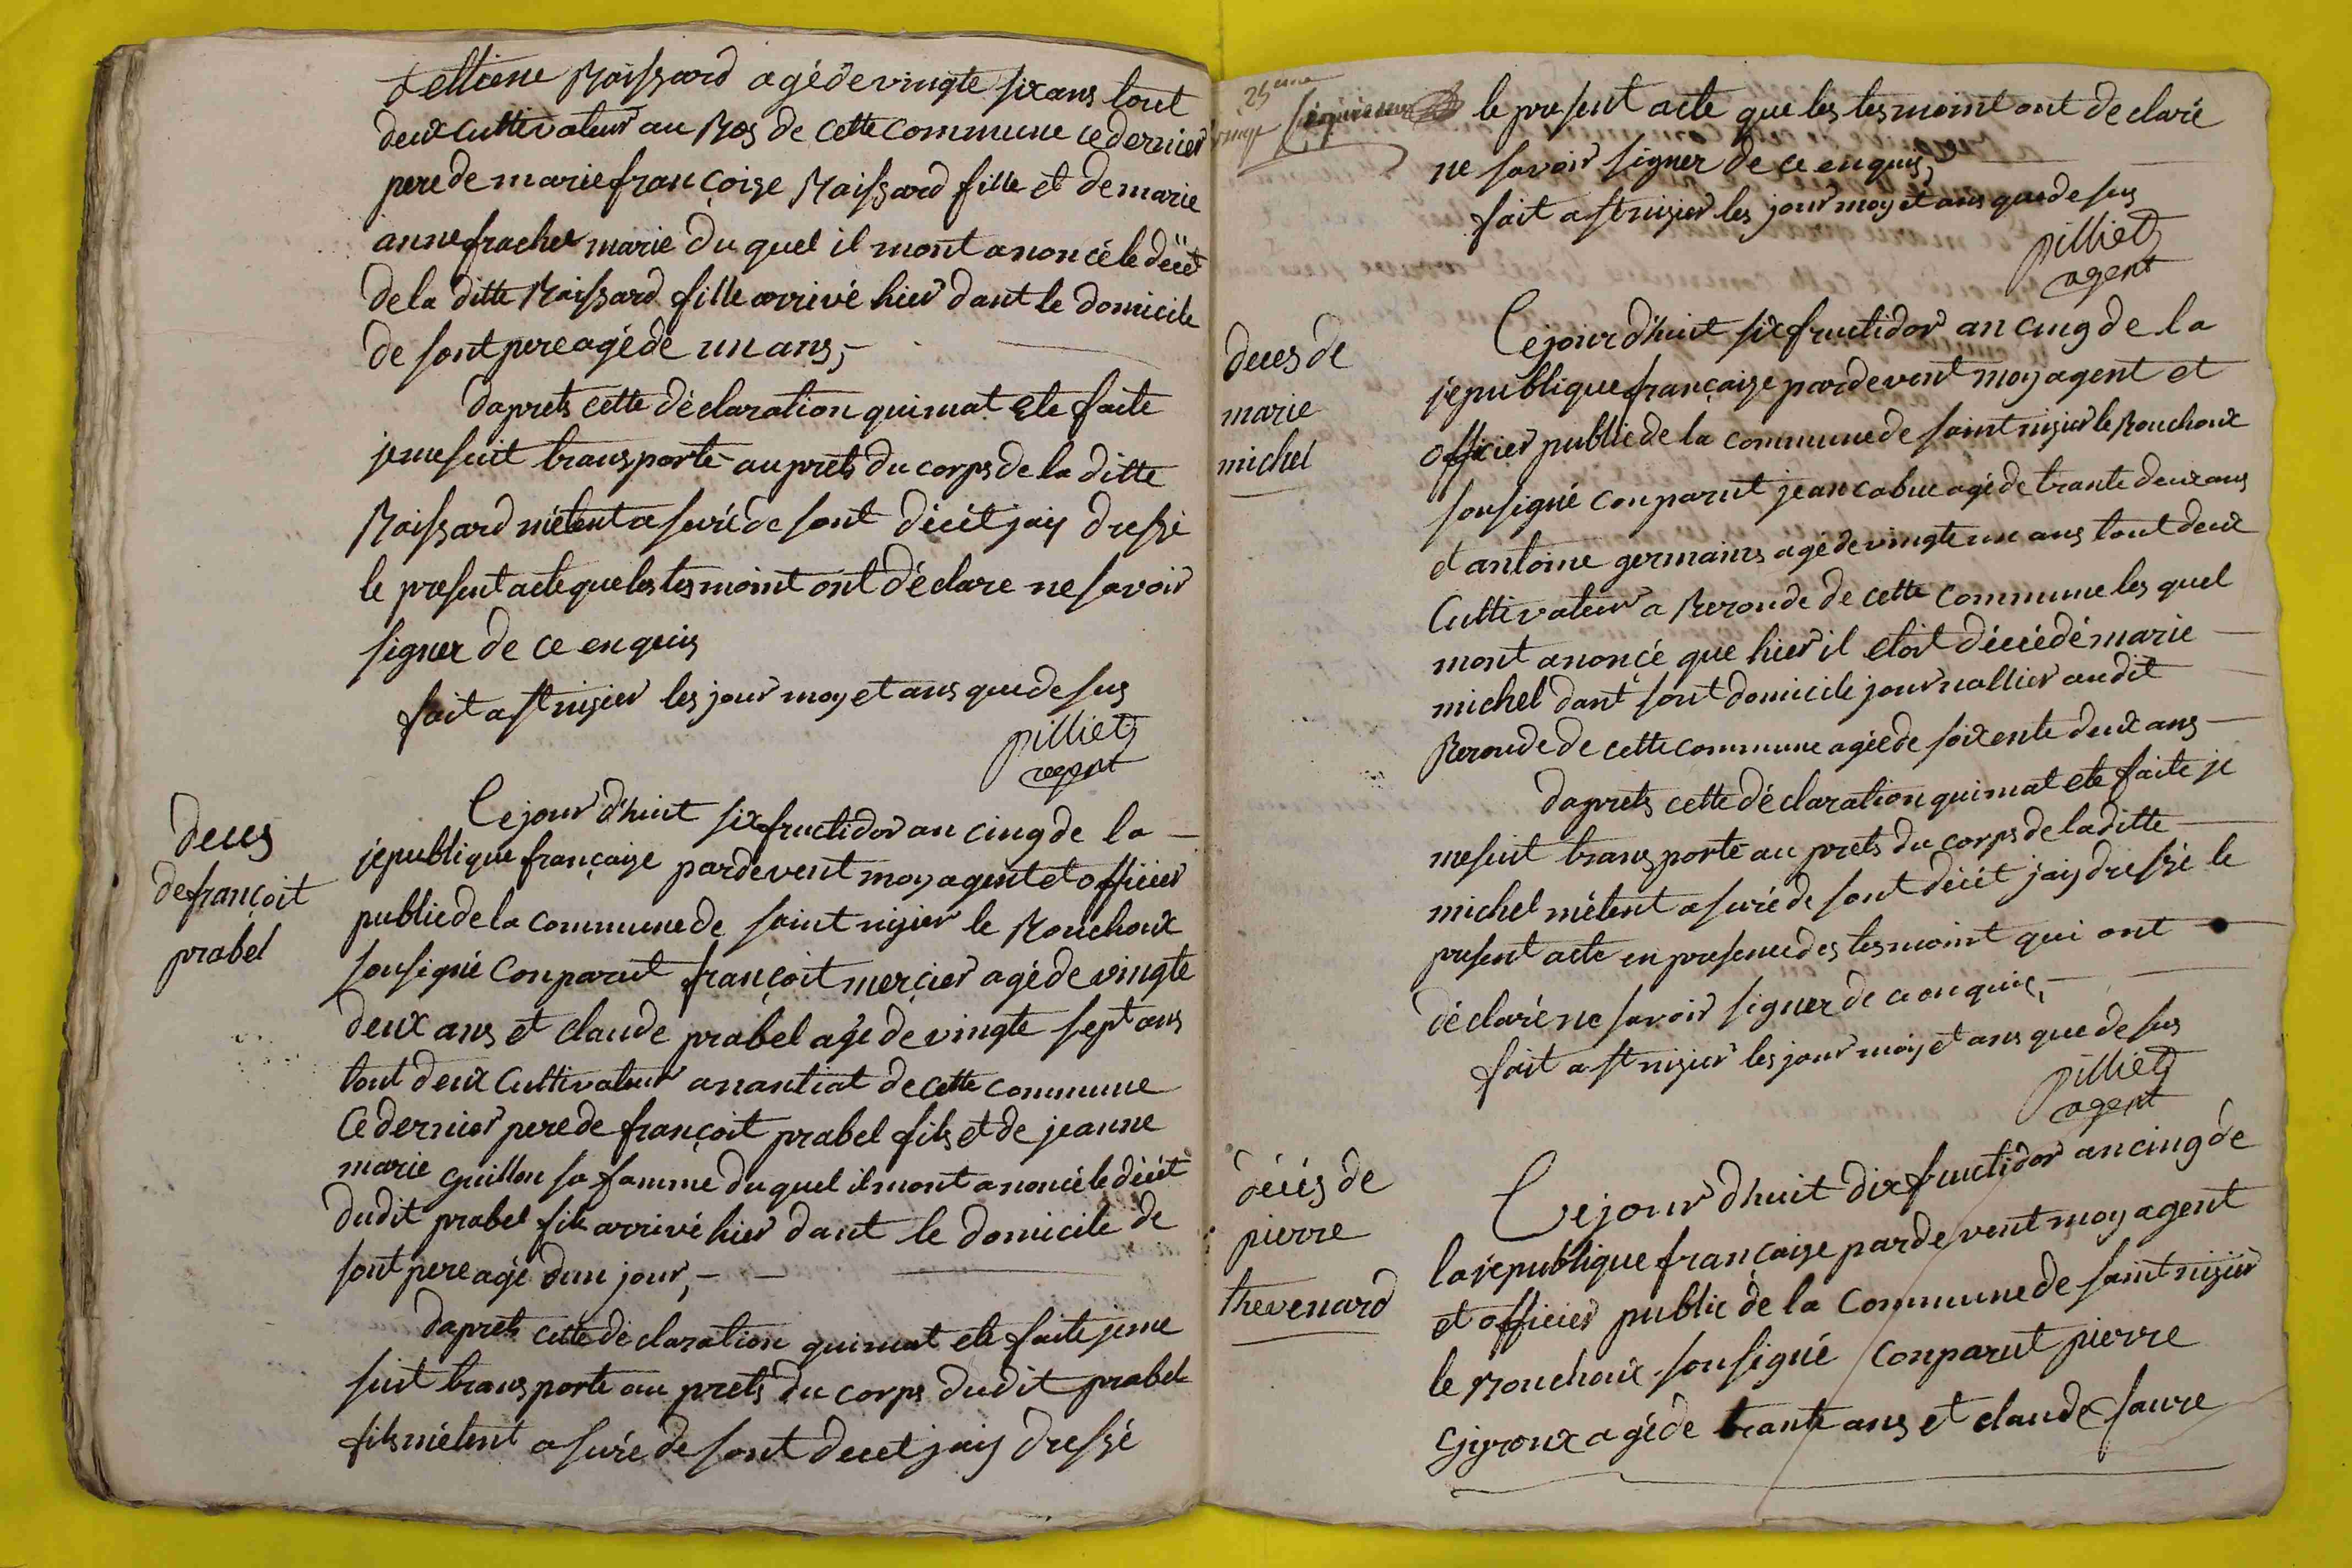 et ettiene Roissard agé de vingte six ans tout
deux Cultivateur au Ros de cette commune ce dernier
pere de marie françoise Roissard fille et de marie
anne frachet marie du quel il mont anoncé le décét
de la ditte Roissard fille arrivé hier dant le domicile
de sont pere agé de un ans,
daprets cette déclaration qui mat ete faite
je me suit transporté auprets du corps de la ditte
Roissard métent asuré de sont décét jay dressé
le present acte que les tesmoint ont déclare ne savoir
signer de ce enquis
fait a st nizier les jour moy et ans que de sus
pilliet
agent
deces
de françoit
prabel
Ce jour d'huit six fructidor an cinq de la
republique françaize pardevent moy agent et officier
public de la commune de saint nizier le Rouchoux
sousigné Conparut françoit merçier agé de vingte
deux ans et claude prabel agé de vingte sept ans
tout deux Cultivateur a nantiat de cette commune
Ce dernier pere de françoit prabel fils et de jeanne
marie guillon sa famme du quel il mont anoncé le décét
dudit prabel fils arrivé hier dant le domicile de
sont pere agé dun jour,
daprets cette déclaration qui mat ete faite je me
suit transporte au prets du corps dudit prabel
fils métent asuré de sont decet jay dressé
25eme
le present acte que les tesmoint ont declaré
ne savoir signer de ce enquis,
fait a st nizier les jour moy et ans que de sus
pilliet
agent
deces de
marie
michel
Ce jour d'huit six fructidor an cinq de la
republique françaize pardevent moy agent et
officier public de la commune de saint nizier le Rouchoux
sousigné Conparut jean cabue agé de trante deux ans
et antoine germains agé de vingte un ans tout deux
Cultivateur a Reronde de cette Commune les quel
mont anonçé que hier il etoit décédé marie
michel dant sont domicile journallier audit
Reronde de cette commune agée de soixente deux ans
daprets cette déclaration qui mat ete faite je
me suit transporté au prets du corps de la ditte
michel métent asuré de sont décét jay dressé le
present acte en presence des tesmoint qui ont
déclaré ne savoir signer de ce enquis,
fait a st nizier les jour moy et ans que de sus
pilliet
agent
décés de
pierre
thevenard
Ce jour d'huit dix fructidor an cinq de
la republique françaize pardevent moy agent
et officier public de la Commune de saint nizier
le Rouchoux sousigné Conparut pierre
Gyroux agé de trante ans et claude faure